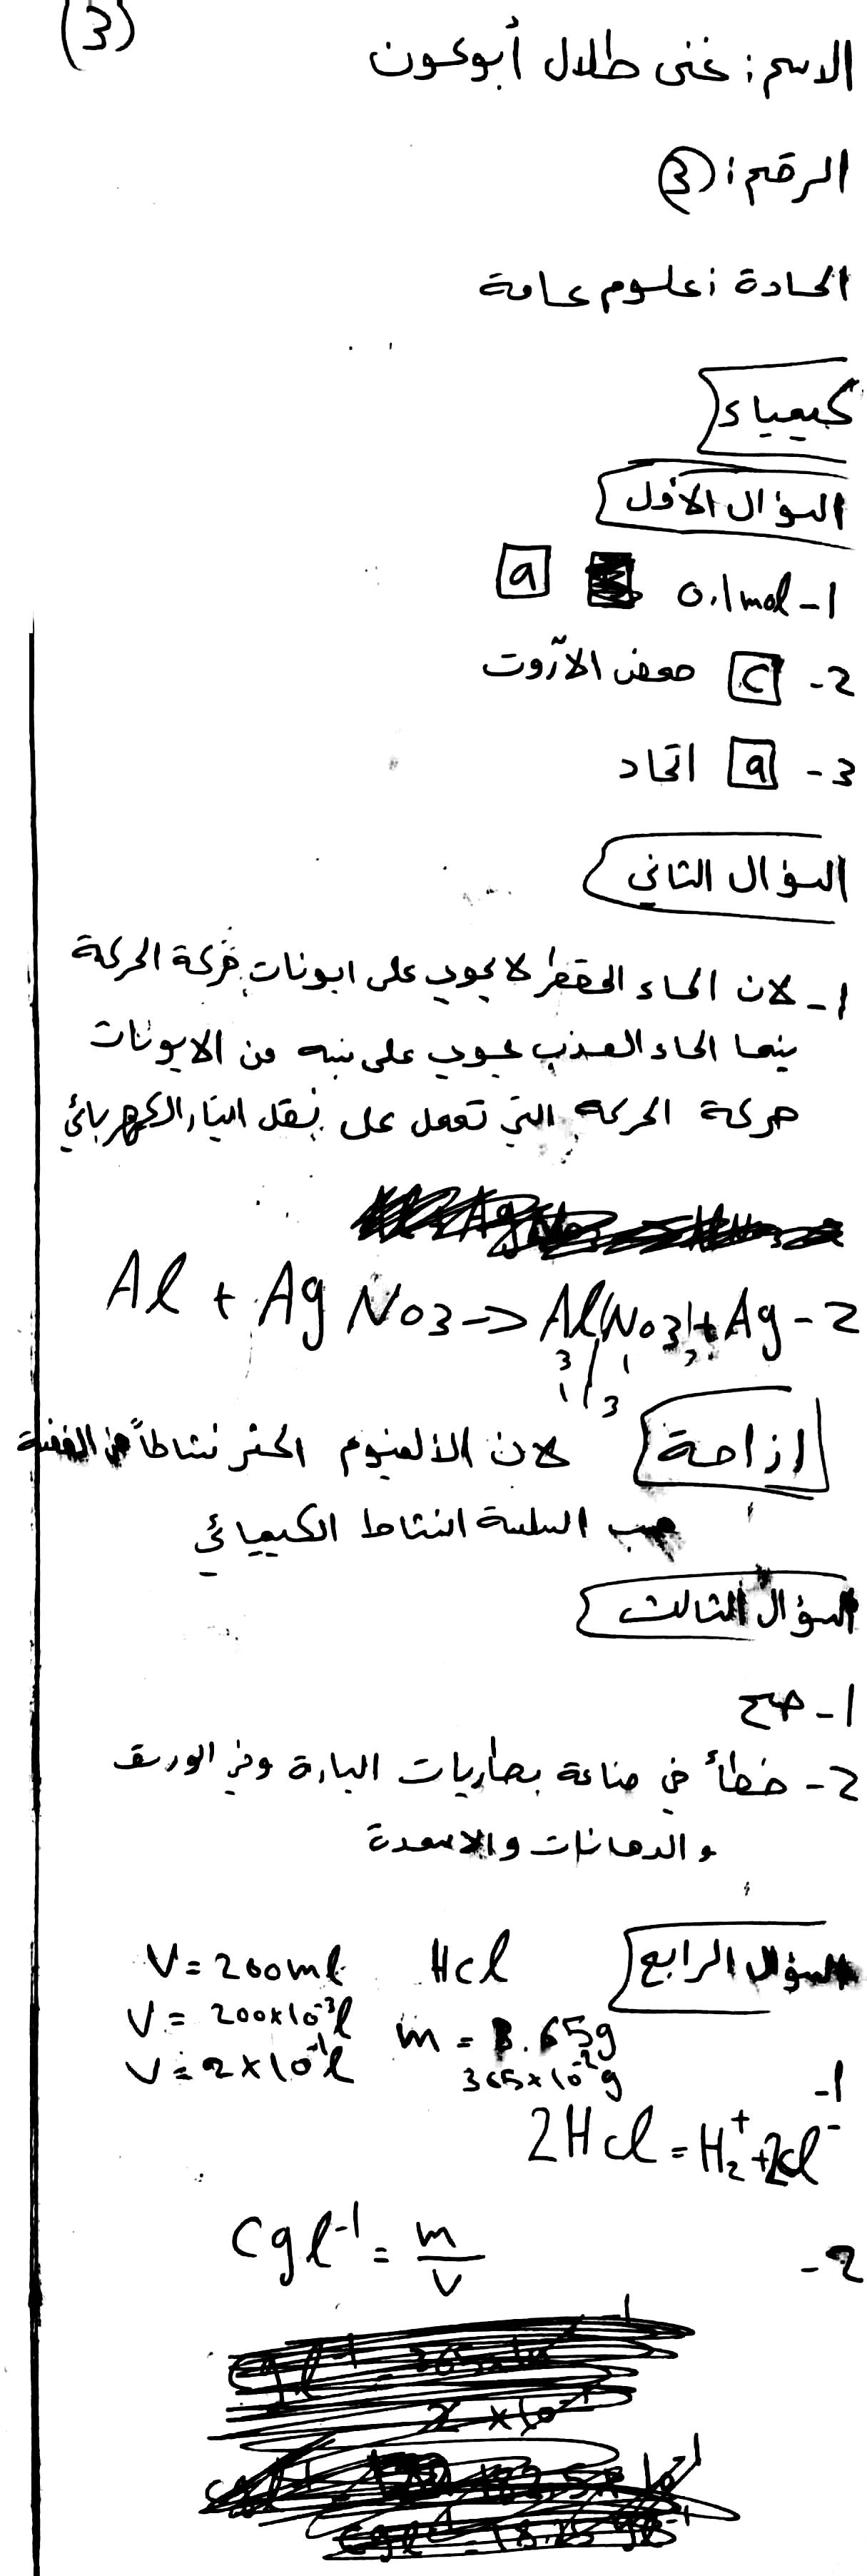 (3)
الاسم : غنى طلال أبوعون
الرقم : (3)
المادة : علوم عامة
كيمياء
السؤال الأول
1- 0.1mol a
2- C حمض الآزوت
3- a اتحاد
السؤال الثاني
1- لان الماء المقطر لا يحوي على ايونات حركة الحركة
بينما الماء العذب يحوي على نسبه من الايونات
حركة الحركه التي تعمل على نقل التيار الكهربائي
Al + Ag No3 -> Al(No3)+Ag -2
3 1
1 3
ازاحة لان الألمنيوم اكثر نشاطاً من الفضة
حسب السلسة النشاط الكيميائي
السؤال الثالث
1- صح
2- خطأ في صناعة بطاريات السيارة وفي الورق
و الدهانات والاسمدة
السؤال الرابع HCl V=200ml
V = 200x10⁻³l
m = 3.65g
V = 2x10⁻¹l
365x10⁻²g
1-
2HCl = H₂⁺ + 2Cl⁻
2- Cgl⁻¹ = m/V